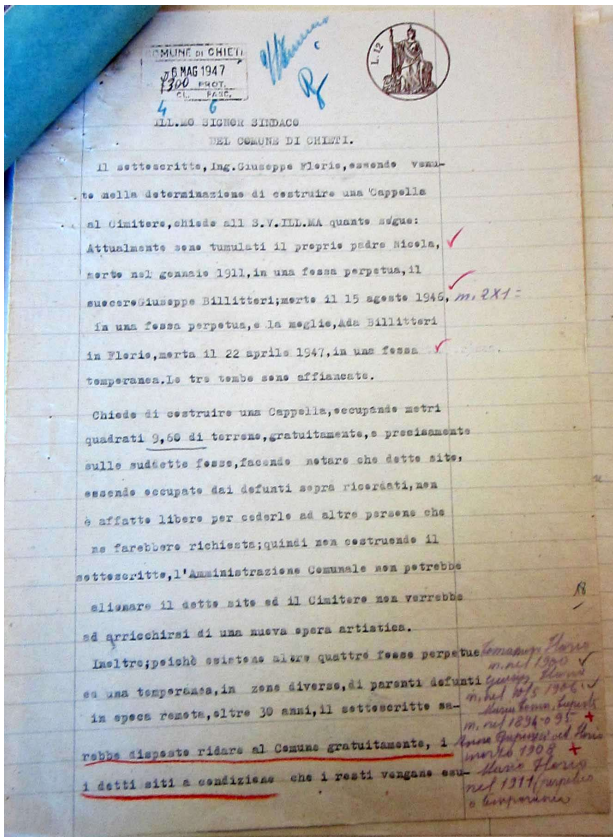 COMUNE DI CHIETI
6 MAG 1947
1300 PROT.
CL. FASC.
4 6
L. 12
ILL.MO SIGNOR SINDACO
DEL COMUNE DI CHIETI.
Il sottoscritto, Ing.Giuseppe Florio, essendo venu-
to nella determinazione di costruire una Cappella
al Cimitero, chiede all S.V.ILL.MA quanto segue:
Attualmente sono tumulati il proprio padre Nicola,
morto nel gennaio 1911, in una fossa perpetua, il
suocero Giuseppe Billitteri; morto il 15 agosto 1946, m. 2X1=
in una fossa perpetua, e la moglie, Ada Billitteri
in Florio, morta il 22 aprile 1947, in una fossa
temporanea. Le tre tombe sono affiancate.
Chiede di costruire una Cappella, occupando metri
quadrati 9,60 di terreno, gratuitamente, e precisamente
sulle suddette fosse, facendo notare che detto sito,
essendo occupato dai defunti sopra ricordati, non
è affatto libero per cederlo ad altre persone che
ne farebbero richiesta; quindi non costruendo il
sottoscritto, l'Amministrazione Comunale non potrebbe
alienare il detto sito ed il Cimitero non verrebbe
ad arricchirsi di una nuova opera artistica.
Inoltre; poichè esistono altre quattro fosse perpetue
ed una temporanea, in zone diverse, di parenti defunti
in epoca remota, oltre 30 anni, il sottoscritto sa-
rebbe disposto ridare al Comune gratuitamente, i
i detti siti a condizione che i resti vengano esu-
Florio
m. nel 1900
Florio
m. nel 1915
m. nel 1894 o 95
Anna
morta 1908
Maria Florio
nel 1911 (perpetua
o temporanea